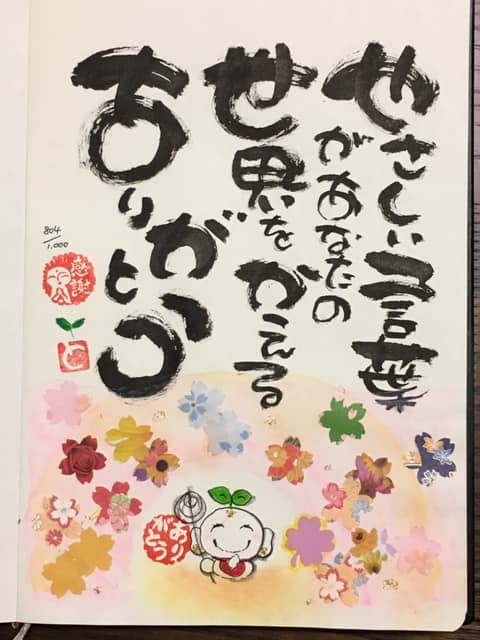 やさしい言葉
があなたの
世界を
かえる
ありがとう
804
1,000
感謝
ありがとう